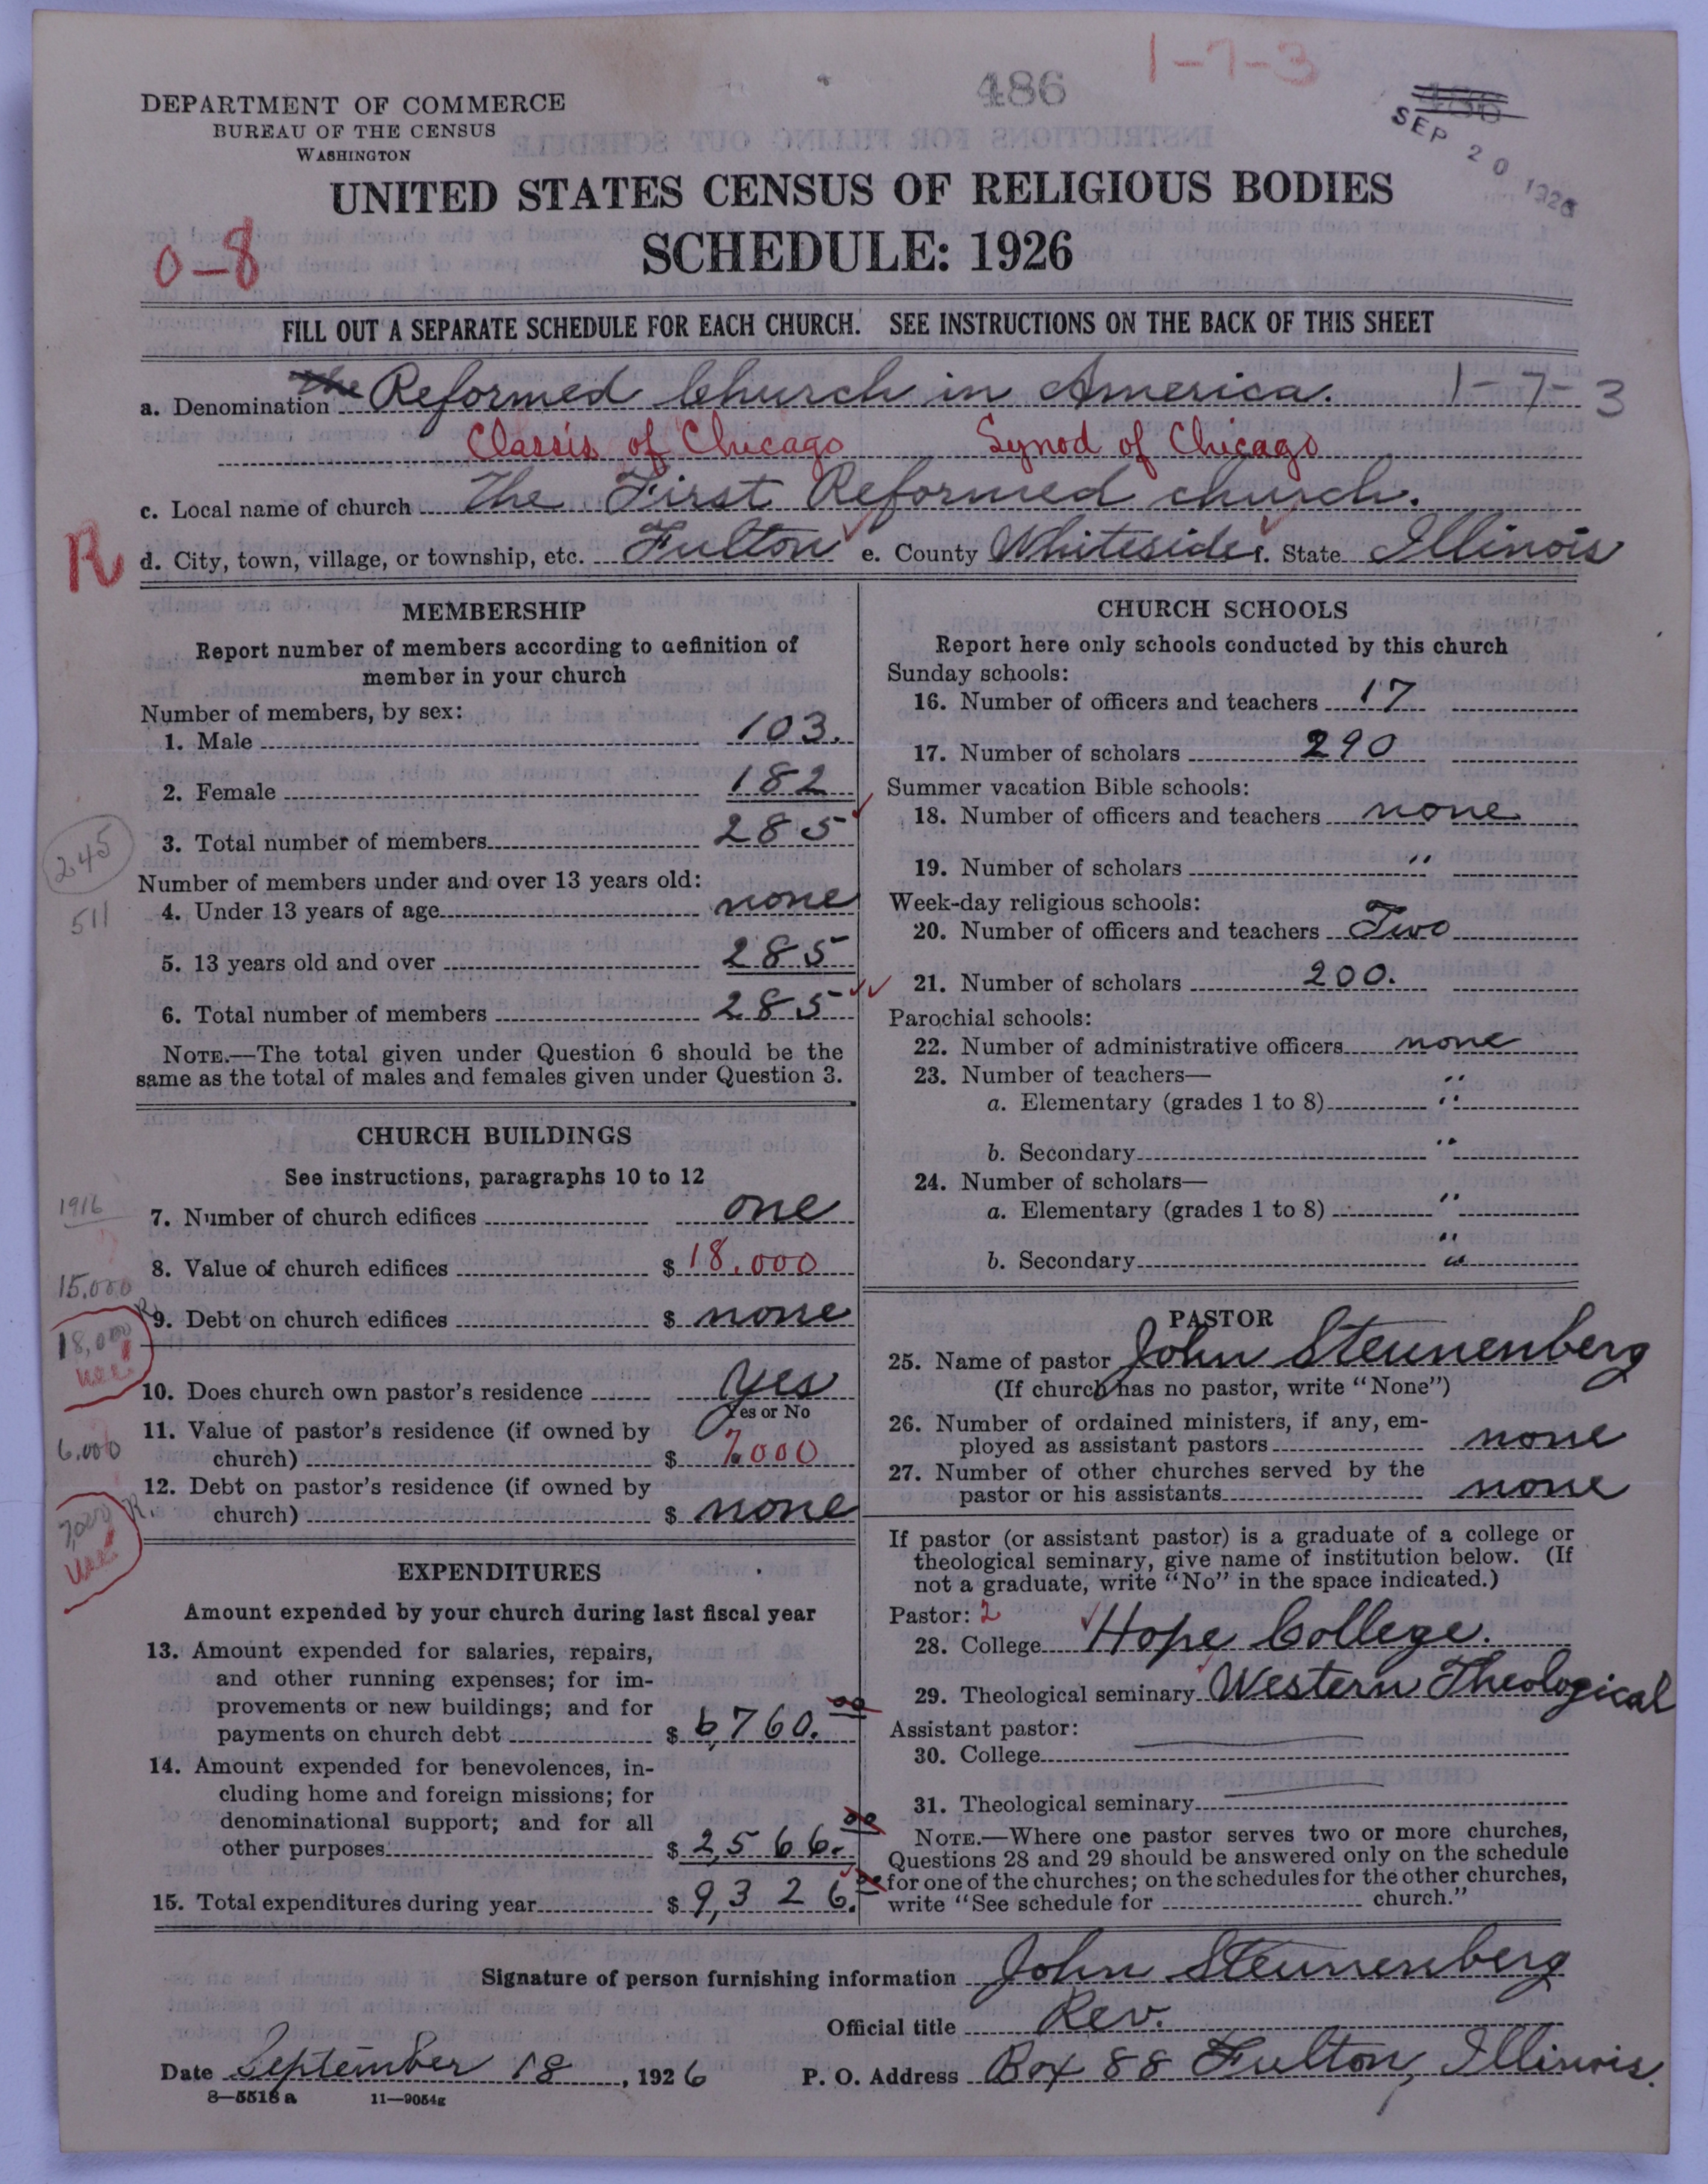 486
1-7-3
DEPARTMENT OF COMMERCE
BUREAU OF THE CENSUS
WASHINGTON
SEP 20 1926
UNITED STATES CENSUS OF RELIGIOUS BODIES
SCHEDULE: 1926
0-8
FILL OUT A SEPARATE SCHEDULE FOR EACH CHURCH. SEE INSTRUCTIONS ON THE BACK OF THIS SHEET
a. Denomination the Reformed Church in America. 1-7-3
Classis of Chicago Synod of Chicago
c. Local name of church The First Reformed church.
R
d. City, town, village, or township, etc. Fulton e. County Whiteside f. State Illinois
MEMBERSHIP
Report number of members according to definition of
member in your church
Number of members, by sex:
1. Male 103.
2. Female 182
3. Total number of members 285
245
Number of members under and over 13 years old:
4. Under 13 years of age none
511
5. 13 years old and over 285
6. Total number of members 285
NOTE.—The total given under Question 6 should be the
same as the total of males and females given under Question 3.
CHURCH BUILDINGS
See instructions, paragraphs 10 to 12
1916
7. Number of church edifices one
8. Value of church edifices $ 18,000
15,000
9. Debt on church edifices $ none
18,000
10. Does church own pastor's residence yes
Yes or No
11. Value of pastor's residence (if owned by
church) $ 7,000
6,000
12. Debt on pastor's residence (if owned by
church) $ none
7,000
R.
EXPENDITURES
Amount expended by your church during last fiscal year
13. Amount expended for salaries, repairs,
and other running expenses; for im-
provements or new buildings; and for
payments on church debt $ 6,760. 00
14. Amount expended for benevolences, in-
cluding home and foreign missions; for
denominational support; and for all
other purposes $ 2,566. 00
15. Total expenditures during year $ 9,326. 00
CHURCH SCHOOLS
Report here only schools conducted by this church
Sunday schools:
16. Number of officers and teachers 17
17. Number of scholars 290
Summer vacation Bible schools:
18. Number of officers and teachers none
19. Number of scholars "
Week-day religious schools:
20. Number of officers and teachers Two
21. Number of scholars 200.
Parochial schools:
22. Number of administrative officers none
23. Number of teachers— "
a. Elementary (grades 1 to 8) "
b. Secondary "
24. Number of scholars—
a. Elementary (grades 1 to 8) "
b. Secondary "
PASTOR
25. Name of pastor John Steunenberg
(If church has no pastor, write "None")
26. Number of ordained ministers, if any, em-
ployed as assistant pastors none
27. Number of other churches served by the
pastor or his assistants none
If pastor (or assistant pastor) is a graduate of a college or
theological seminary, give name of institution below. (If
not a graduate, write "No" in the space indicated.)
Pastor: 2
28. College Hope College.
29. Theological seminary Western Theological
Assistant pastor:
30. College
31. Theological seminary
NOTE.—Where one pastor serves two or more churches,
Questions 28 and 29 should be answered only on the schedule
for one of the churches; on the schedules for the other churches,
write "See schedule for church."
Signature of person furnishing information John Steunenberg
Official title Rev.
Date September 18, 1926 P. O. Address Box 88 Fulton, Illinois.
8—5518 a 11—9054g